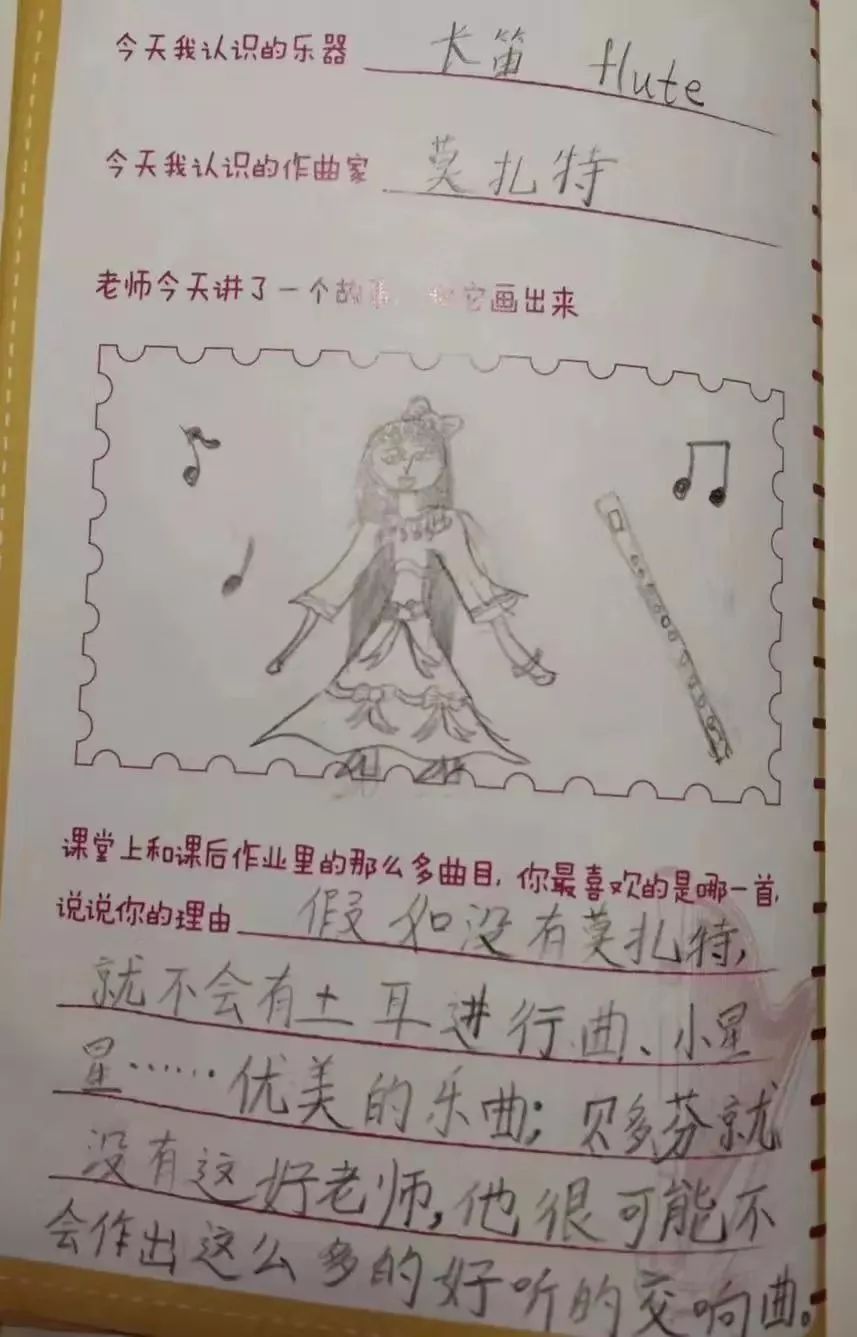 今天我认识的乐器 长笛 flute
今天我认识的作曲家 莫扎特
老师今天讲了一个故事 它画出来
课堂上和课后作业里的那么多曲目,你最喜欢的是哪一首,
说说你的理由 假如没有莫扎特,
就不会有土耳进行曲、小星
星……优美的乐曲;贝多芬就
没有这好老师,他很可能不
会作出这么多的好听的交响曲。